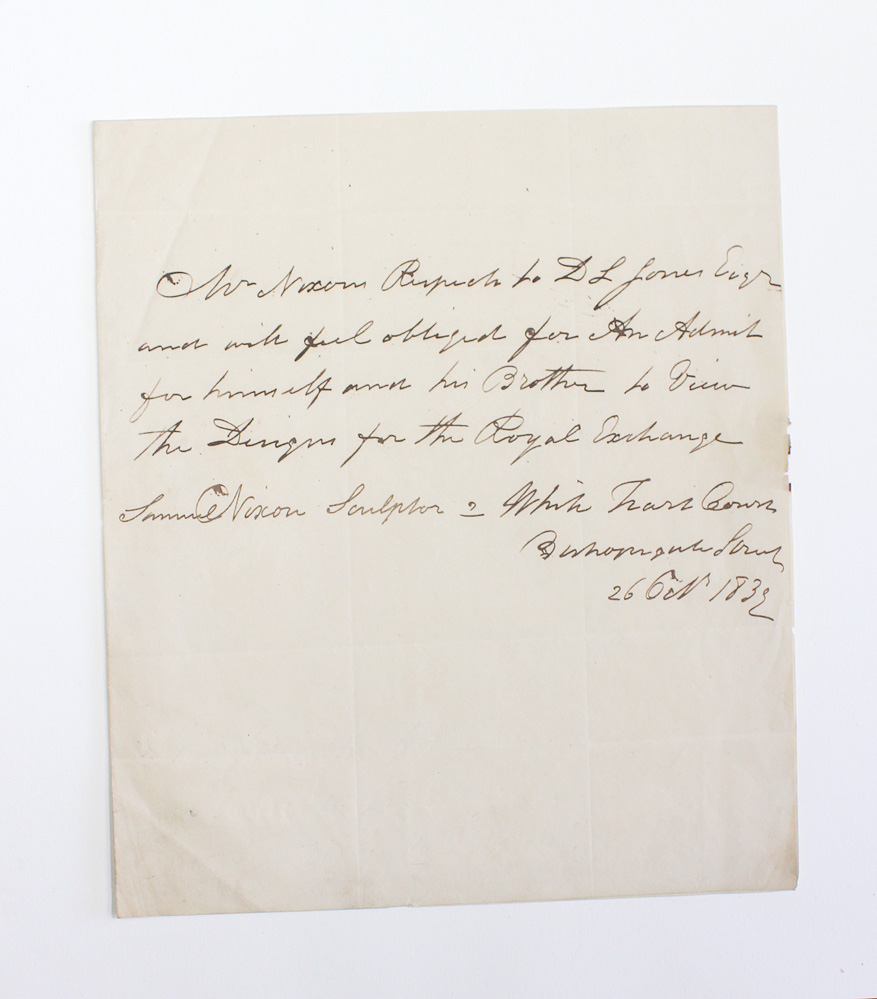 Mr Nixons Respects to D L Jones Esqr
and will feel obliged for An Admit
for himself and his Brother to View
the Designs for the Royal Exchange
Samuel Nixon Sculptor 2 White Hart Court
Bishopsgate Street
26 Octr 1839